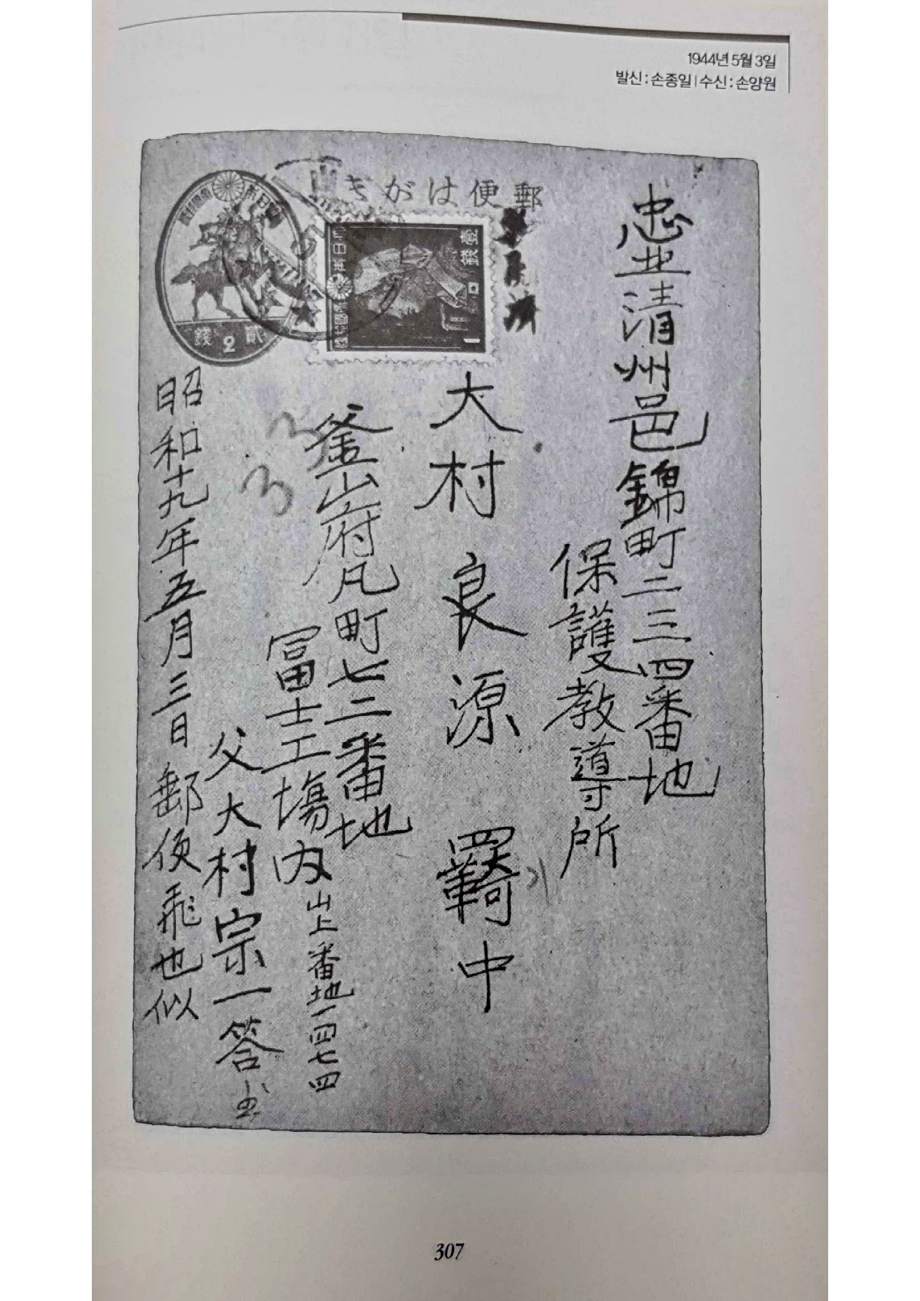 1944년 5월 3일
발신 : 손종일 | 수신 : 손양원
郵便はがき
壹錢
1
貳錢
2
忠北清州邑錦町二三四番地
保護教導所
大村良源 羈中
釜山府凡町七二番地
冨士工場内 山上番地一四七四
父大村宗一答书
昭和十九年五月三日郵便飛也似
307